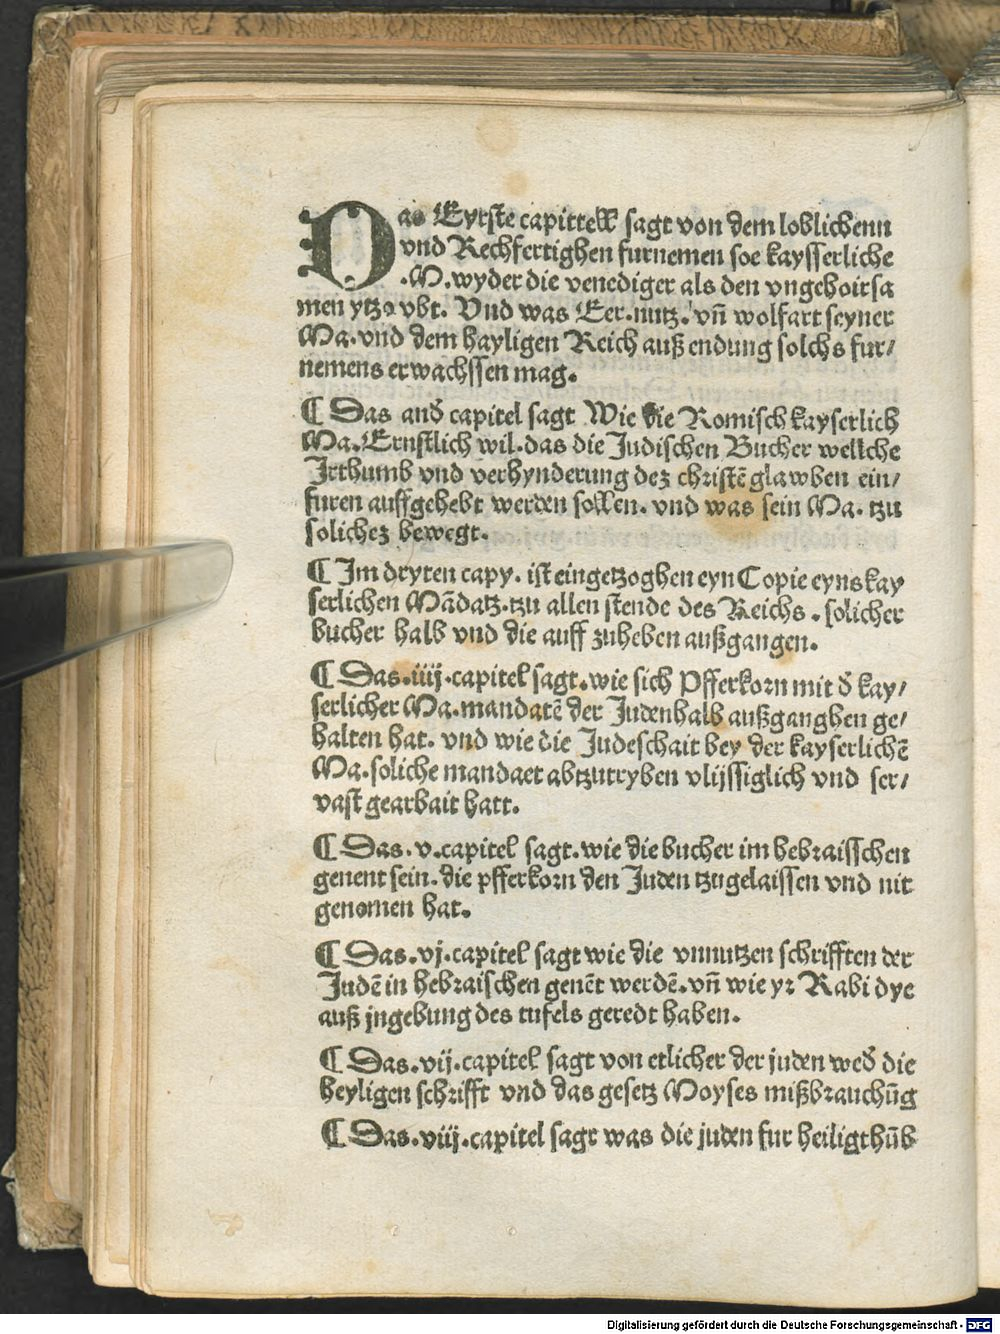 Das Eyrste capittell sagt von dem loblichenn
vnd Rechfertighen furnemen soe kaysserliche
.M. wyder die venediger als den vngehoirsa
men ytzo vbt. Vnd was Eer. nutz. vn̄ wolfart seyner
Ma. vnd dem hayligen Reich auß endung solchs fur/
nemens erwachssen mag.
¶ Das and̄ capitel sagt Wie die Romisch kayserlich
Ma. Ernstlich wil. das die Judischen Bucher wellche
Irthumb vnd verhynderung dez christē glawben ein/
furen auffgehebt werden sollen. vnd was sein Ma. tzu
solichez bewegt.
¶ Im dryten capy. ist eingetzoghen eyn Copie eyns kay
serlichen Mādatz. tzu allen stende des Reichs. solicher
bucher halb vnd die auff zuheben außgangen.
¶ Das .iiij. capitel sagt. wie sich Pfferkorn mit d̄ kay/
serlicher Ma. mandatē der Judenhalb außganghen ge/
halten hat. vnd wie die Judeschait bey der kayserlichē
Ma. soliche mandaet abtzutryben vlijssiglich vnd ser/
vast gearbait hatt.
¶ Das .v. capitel sagt. wie die bucher im hebraisschen
genent sein. die pfferkorn den Juden tzugelaissen vnd nit
genomen hat.
¶ Das .vj. capitel sagt wie die vnnutzen schrifften der
Judē in hebraischen genēt werdē. vn̄ wie yr Rabi dye
auß jngebung des tufels geredt haben.
¶ Das .vij. capitel sagt von etlicher der juden wed̄ die
heyligen schrifft vnd das gesetz Moyses mißbrauchūg
¶ Das .viij. capitel sagt was die juden fur heiligthūb
Digitalisierung gefördert durch die Deutsche Forschungsgemeinschaft - DFG